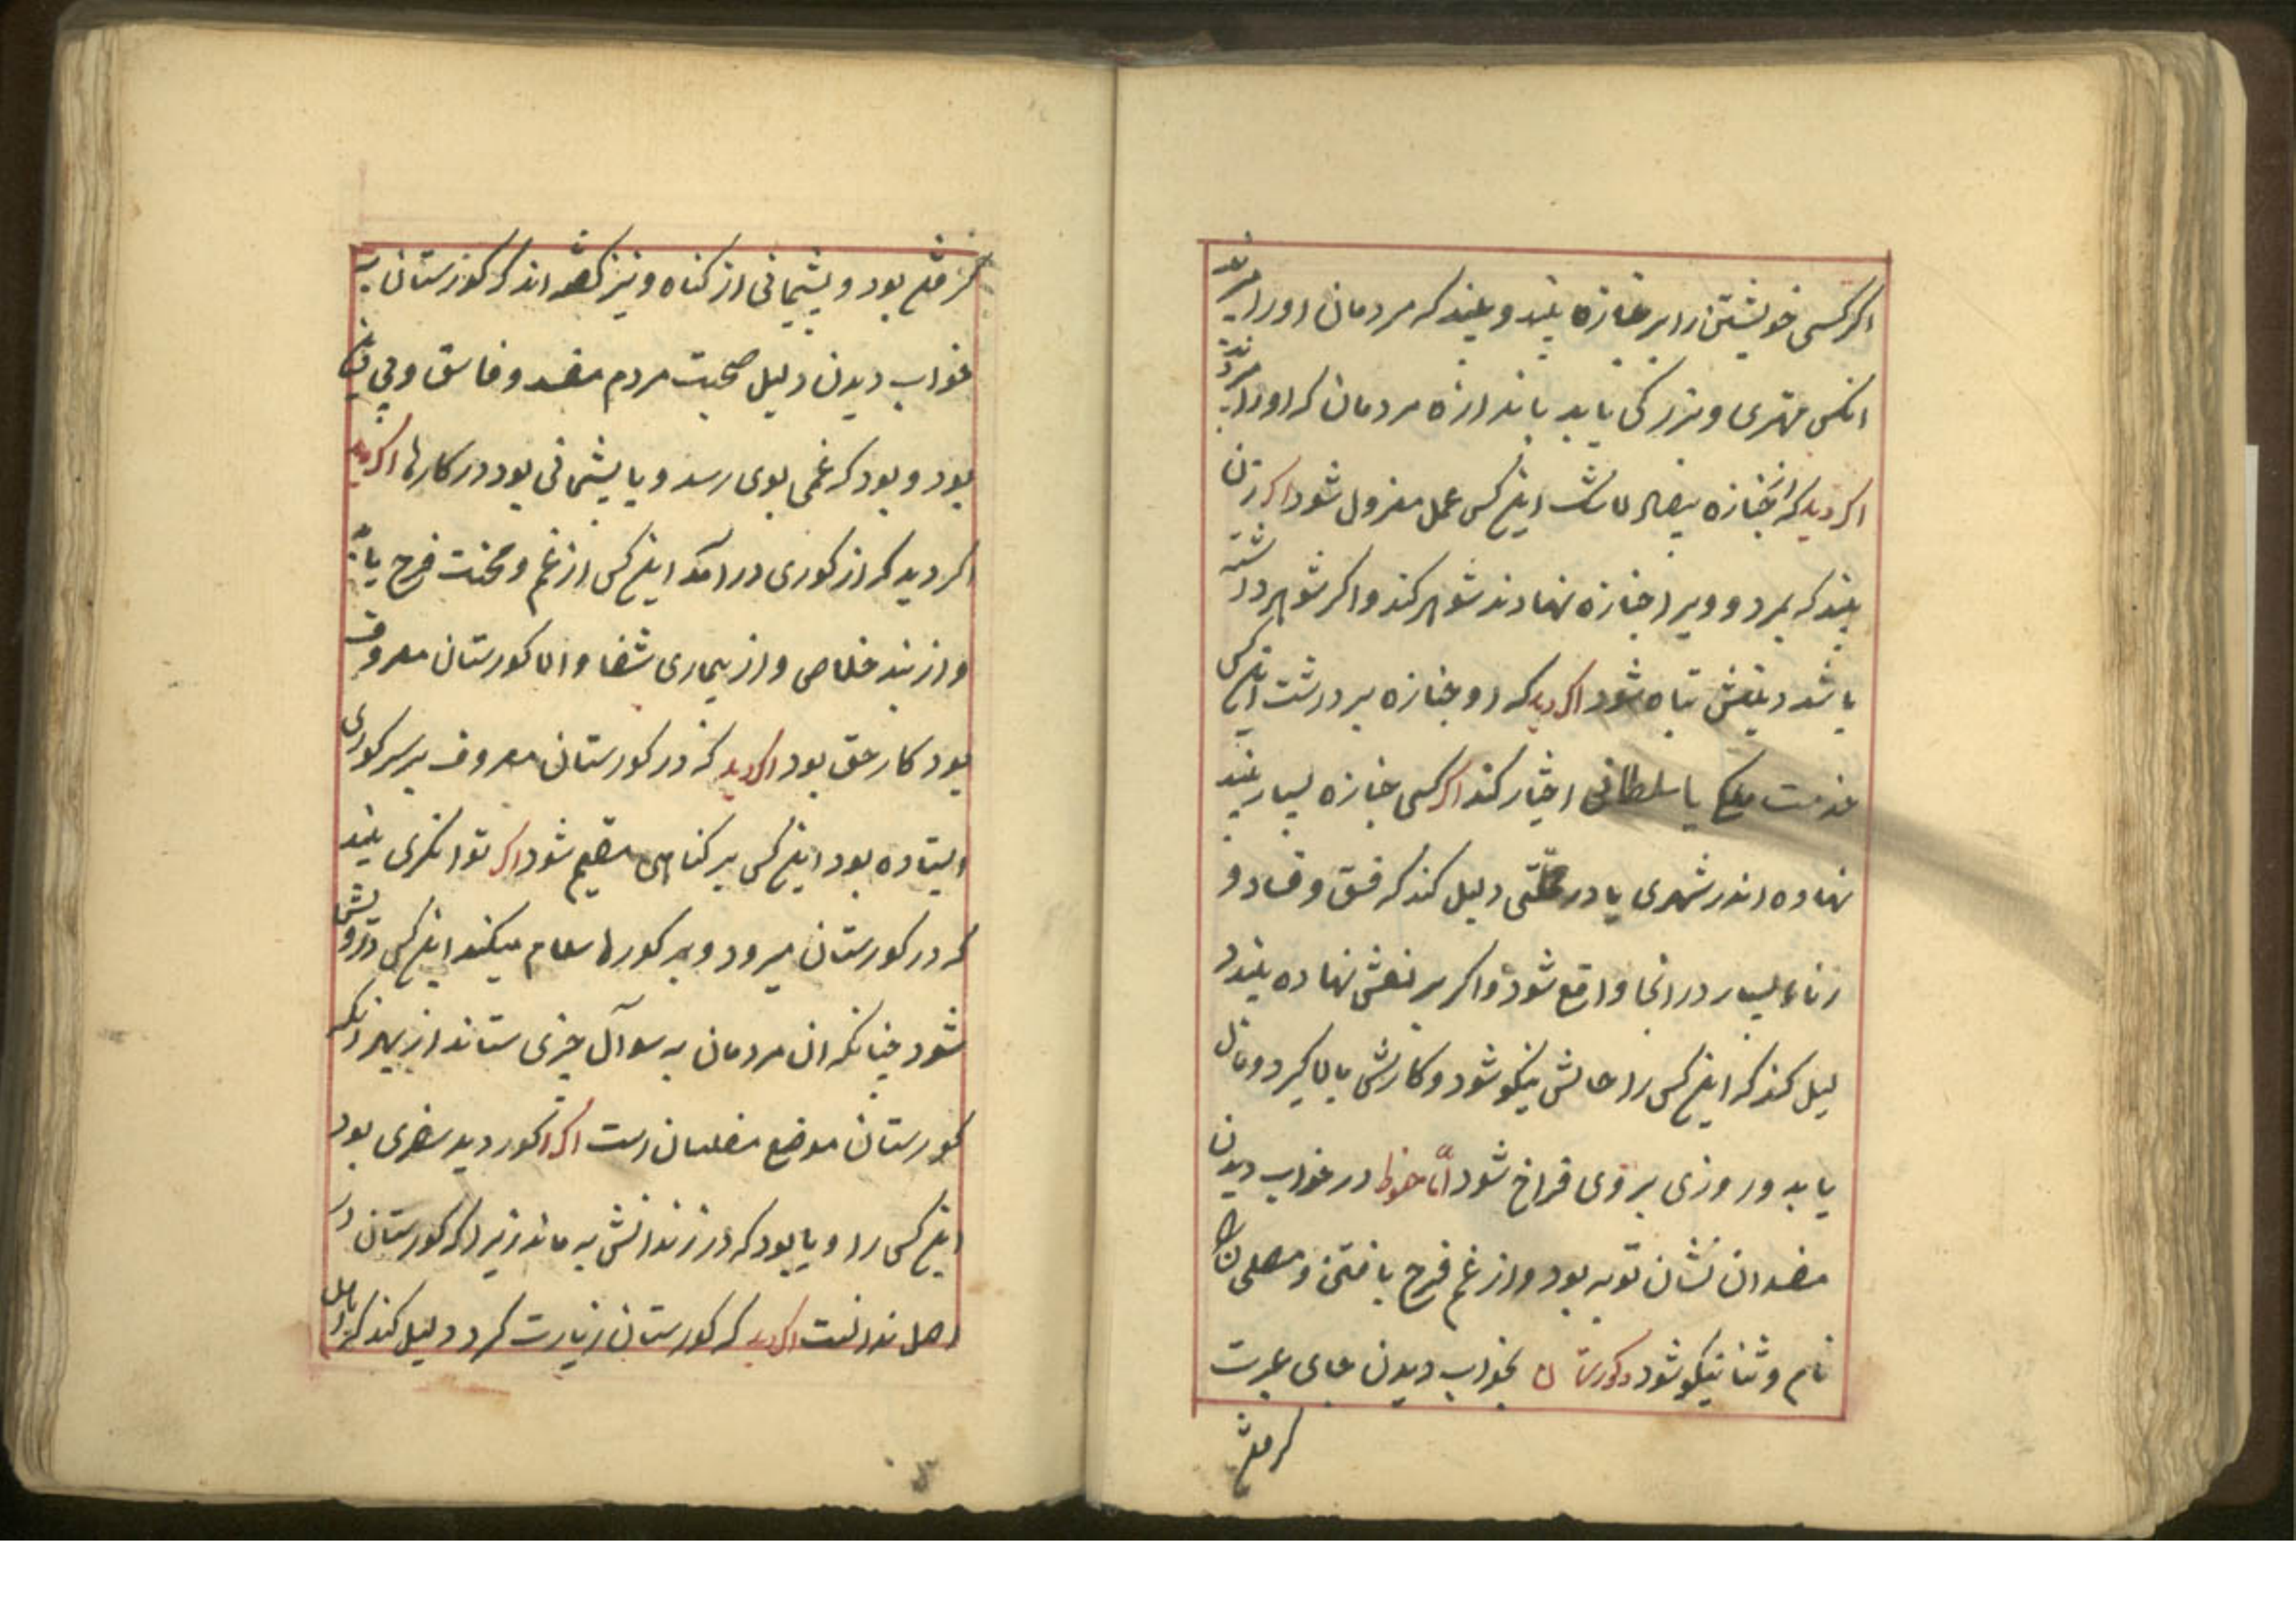 اکر کسی خویشتن را بر جنازه بیند و بیند که مردمان او را میبرند
انکس مهتری و بزرکی یابد باندازه مردمان که او را میبردند
اکر دید که از جنازه بیفتاد اینکس عمل معزول شود اکر زن
بیند که بمرد و ویرا جنازه نهادند شوهر کند و اکر شوهر داشته
باشد دینش تباه شود اکر دید که او جنازه برداشت اینکس
خدمت ملکی یا سلطانی اختیار کند اکر کسی جنازه بسیار بیند
نهاده اندر شهری یا در محلتی دلیل کند که فسق و فساد و
زناء بسیار در انجا واقع شود و اکر بر نعش نهاده بیند د
لیل کند که اینکس را حالش نیکو شود و کارش بالا کیرد و مال
یابد و روزی بر وی فراخ شود اما حنوط در خواب دیدن
مفسدان نشان توبه بود و از غم فرج یافتن و مصلحان
نام و ثنا نیکو شود کورستان بخواب دیدن جای عبرت
کرفتن
کرفتن بود و پشیمانی از کناه و نیز کفته اند که کورستان به
خواب دیدن دلیل صحبت مردم مفسد و فاسق و بی
بود و بود که غمی بوی رسد و یا پشیمانی بود در کارها اکر دید
اکر دید که از کوری در آمد اینکس از غم و محنت فرج یابد
و از بند خلاصی و از بیماری شفا و اما کورستان معروف
بود کار حق بود اکر دید که در کورستان معروف بر سر کوری
ایستاده بود اینکس بر کناهی مقیم شود اکر توانکری بیند
که در کورستان میرود و بر کورها سلام میکند اینکس درویش
شود چنانکه از مردمان به سوآل چیزی ستاند از بهر انکه
کورستان موضع مفلسان است اکر کور دید سفری بود
اینکس را و یا بود که در زندانش به ماند زیرا که کورستان در
اصل زندانست اکر دید که کورستان زیارت کرد دلیل کند که با اهل